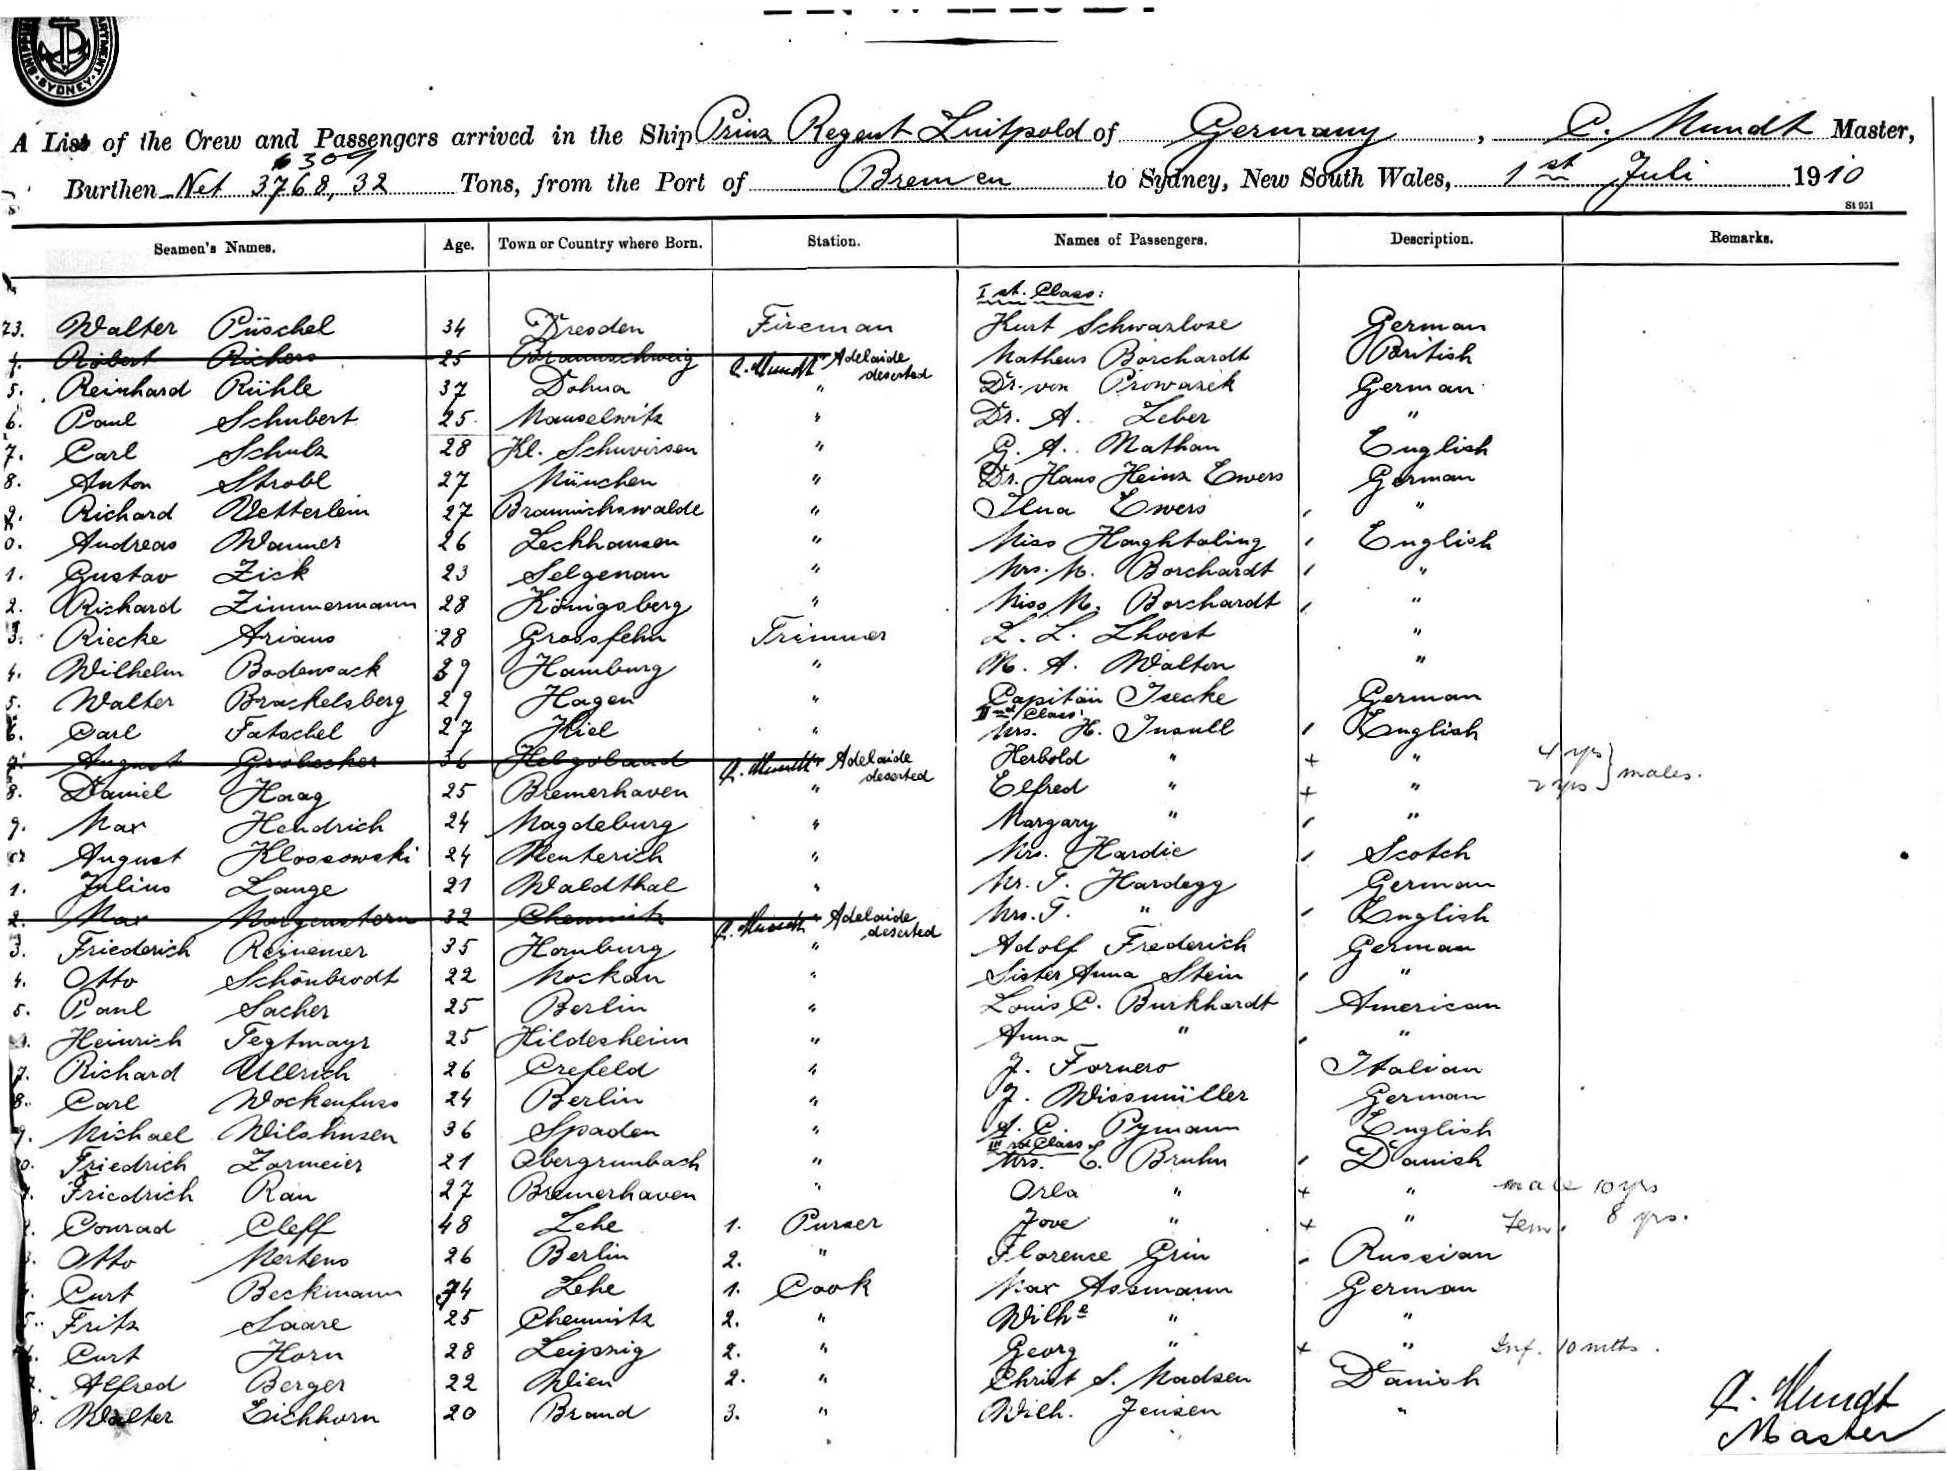 A List of the Crew and Passengers arrived in the Ship Prinz Regent Luitpold of Germany, C. Mundt Master,
6309
Burthen Net 3768,32 Tons, from the Port of Bremen to Sydney, New South Wales, 1st Juli 1910
St 951
Seamen's Names. Age. Town or Country where Born. Station. Names of Passengers. Description. Remarks.
Ist. Class:
23. Walter Püschel 34 Dresden Fireman Kurt Schwarzlose German
4. Robert Richers 25 Braunschweig " C. Mundt Adelaide deserted Matheus Borchardt British
5. Reinhard Rühle 37 Dohna " Dr. von Prowazek German
6. Paul Schubert 25 Manselwitz " Dr. A. Leber "
7. Carl Schulz 28 Kl. Schuvirsen " G. A. Nathan English
8. Anton Strobl 27 München " Dr. Hans Heinz Ewers German
9. Richard Vetterlein 27 Braunichswalde " Ilna Ewers "
0. Andreas Wanner 26 Lechhausen " Miss Haughtaling English
1. Gustav Zick 23 Selgenau " Mrs. M. Borchardt "
2. Richard Zimmermann 28 Königsberg " Miss M. Borchardt "
3. Riecke Arians 28 Grossfehn Trimmer L. L. Lhoest "
4. Wilhelm Bodensack 39 Hamburg " M. A. Walton "
5. Walter Brackelsberg 29 Hagen " Capitän Isecke German
IInd Class:
6. Carl Fatschel 27 Kiel " Mrs. H. Insull English
7. August Grobecker 36 Helgoland " C. Mundt Adelaide deserted Herbold " + " 4 yrs
8. Daniel Haag 25 Bremerhaven " Elfred " + " 2 yrs } males.
9. Max Hendrich 24 Magdeburg " Margary " "
August Klossowski 24 Menterich " Mrs. Hardie Scotch
1. Julius Lange 21 Waldthal " Mr. T. Hardegg German
2. Max Morgenstern 32 Chemnitz " C. Mundt Adelaide deserted Mrs. T. " English
3. Friederich Reinemer 35 Homburg " Adolf Frederich German
4. Otto Schönbrodt 22 Mockau " Sister Anna Stein "
5. Paul Sacher 25 Berlin " Louis C. Burkhardt American
Heinrich Tegtmayr 25 Hildesheim " Anna " "
7. Richard Ullrich 26 Crefeld " J. Fornero Italian
8. Carl Wockenfuss 24 Berlin " J. Wissmüller German
9. Michael Wilshusen 36 Spaden " A. C. Pymann English
IIIrd Class
0. Friedrich Zarmeier 21 Obergrumbach " Mrs. C. Bruhn Danish
Friedrich Rau 27 Bremerhaven " Orla " + " male 10 yrs
Conrad Cleff 48 Lehe 1. Purser Jove " + " Fem. 8 yrs.
Otto Mertens 26 Berlin 2. " Florence Grin Russian
Curt Beckmann 34 Lehe 1. Cook Max Assmann German
5. Fritz Saare 25 Chemnitz 2. " Wilhe " "
Curt Horn 28 Leipzig 2. " Georg " + " Inf. 10 mths.
Alfred Berger 22 Wien 2. " Christ S. Madsen Danish
8. Walter Eichhorn 20 Brand 3. " Wilh. Jensen "
C. Mundt
Master